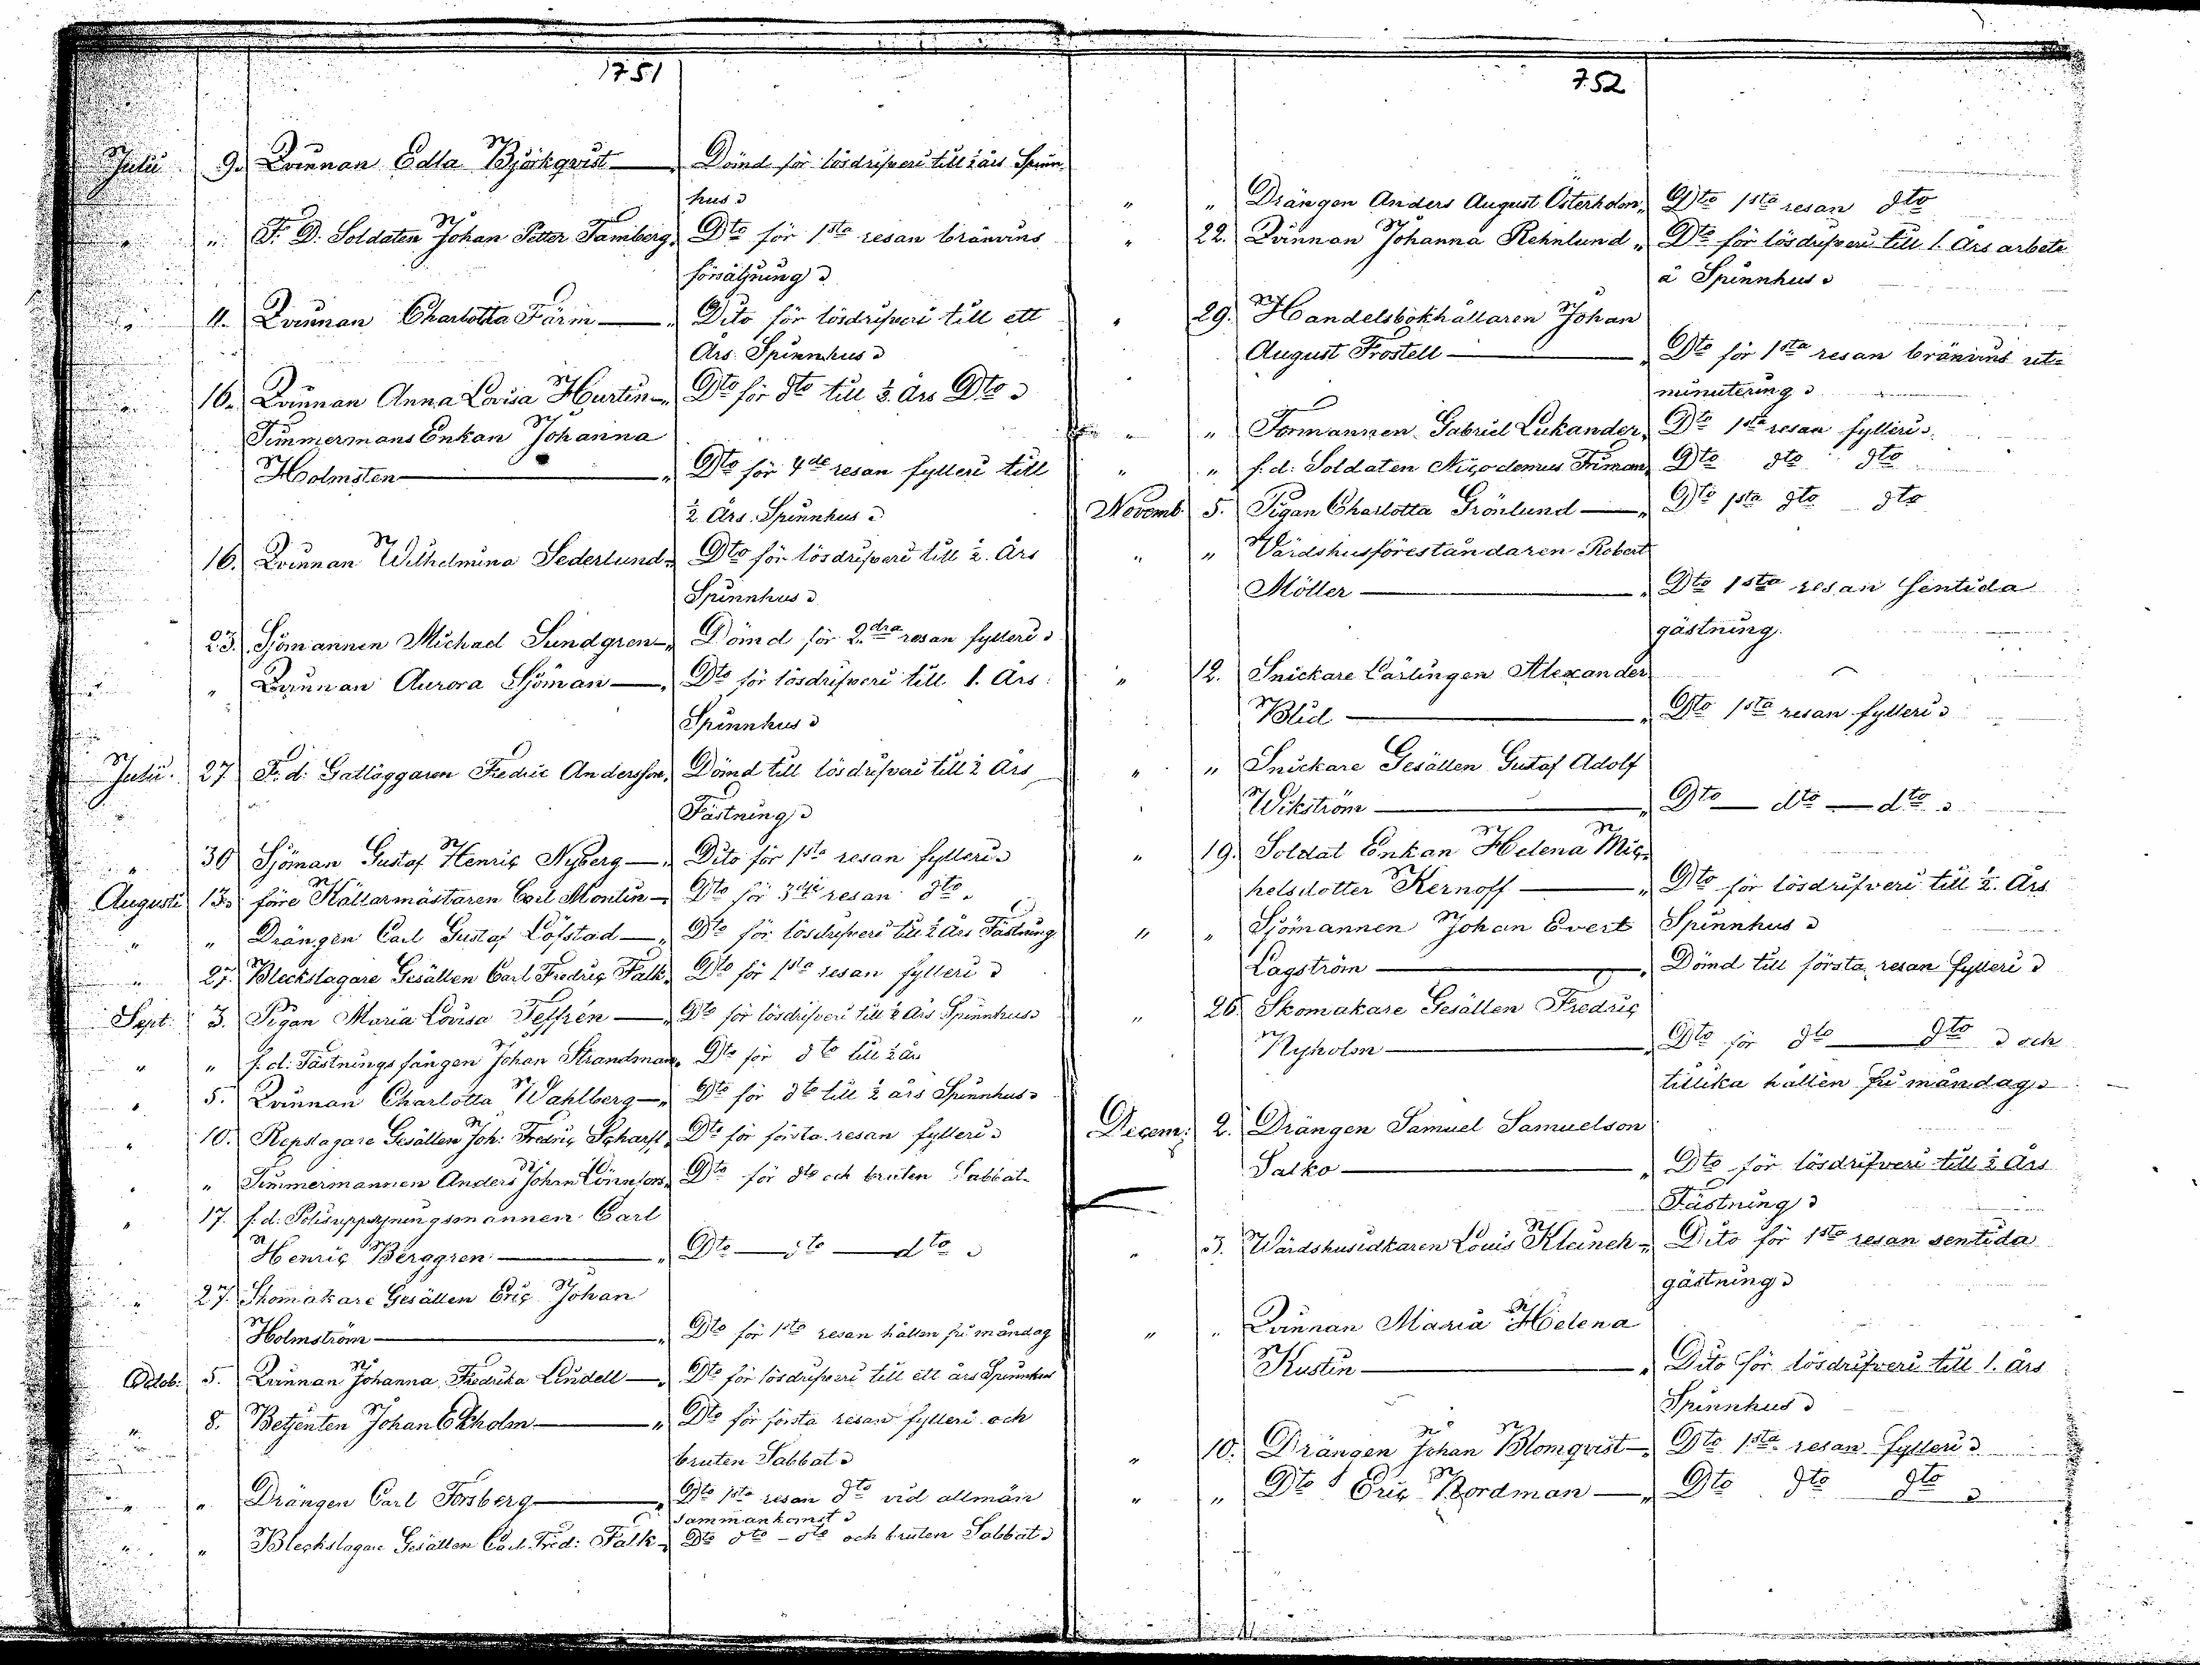 1751
Julii 9. Qvinnan Edla Björkqvist — Dömd för lösdrifveri till 2 års Spinn-
hus
" " F. D. Soldaten Johan Petter Tamberg, Dto för 1sta resan bränvins
försäljning
" 11. Qvinnan Charlotta Färm — Dito för lösdrifveri till ett
Års Spinnhus
" 16. Qvinnan Anna Lovisa Hurtin — Dto för dto till 2. års Dto
Timmermans Enkan Johanna
Holmsten — Dto för 4de resan fylleri till
2 Års. Spinnhus
16. Qvinnan Wilhelmina Sederlund, Dto för lösdrifveri till 2. Års
Spinnhus
23. Sjömannen Michael Sundgren — Dömd för 2dra resan fylleri
" Qvinnan Aurora Sjöman — Dto för lösdrifveri till 1. Års
Spinnhus
Julii. 27 F. d: Gatläggaren Fredric Andersson, Dömd till lösdrifveri till 2 Års
Fästning
" 30 Sjöman Gustaf Henric Nyberg — Dito för 1sta resan fylleri
Augusti 13. före Källarmästaren Carl Montin — Dto för 3dje resan dto
" " Drängen Carl Gustaf Löfstad — Dto för lösdrifveri till 2 års Fästning
" 27. Bleckslagare Gesällen Carl Fredric Falk, Dto för 1sta resan fylleri
Sept: 3. Pigan Maria Lovisa Teffrén — Dto för lösdrifveri till 2 års Spinnhus
" " f. d: Fästningsfången Johan Strandman, Dto för dto till 2 års
" 5. Qvinnan Charlotta Wahlberg — Dto för dto till 2 års Spinnhus
" 10. Repslagare Gesällen Joh: Fredric Scharff, Dto för första resan fylleri
" " Timmermannen Anders Johan Lönnfors, Dto för dto och bruten Sabbat
" 17. f. d: Polisuppsyningsmannen Carl
Henric Berggren — Dto — dto — dto
" 27. Skomakare Gesällen Eric Johan
Holmström — Dto för 1sta resan hållen fri måndag
Octob: 5. Qvinnan Johanna Fredrika Lindell — Dto för lösdrifveri till ett års Spinnhus
" 8. Betjenten Johan Ekholm — Dto för första resan fylleri och
bruten Sabbat
" " Drängen Carl Forsberg — Dto 1sta resan dto vid allmän
Sammankomst
" " Bleckslagare Gesällen Carl Fred: Falk, Dto dto — dto och bruten Sabbat
752
" " Drängen Anders August Österholm, Dto 1sta resan dto
" 22. Qvinnan Johanna Rehnlund, Dto för lösdrifveri till 1. Års arbete
å Spinnhus
" 29. Handelsbokhållaren Johan
August Frostell — Dto för 1sta resan bränvins ut-
minutering
" " Formannen Gabriel Lukander, Dto 1sta resan fylleri
" " f. d: Soldaten Nicodemus Friman, Dto dto dto
Novemb. 5. Pigan Charlotta Grönlund — Dto 1sta dto dto
" " Värdshusföreståndaren Robert
Möller — Dto 1sta resan Sentida
gästning.
" 12. Snickare Lärlingen Alexander
Blid — Dto 1sta resan fylleri
" " Snickare Gesällen Gustaf Adolf
Wikström — Dto — dto — dto
" 19. Soldat Enkan Helena Mic-
helsdotter Kernoff — Dto för lösdrifveri till 2. Års
" " Sjömannen Johan Evert Spinnhus
Lagström — Dömd till första resan fylleri
" 26. Skomakare Gesällen Fredric
Nyholm — Dto för dto — dto och
tillika hållen fri måndag
Decem: 2. Drängen Samuel Samuelson
Salko — Dto för lösdrifveri till 2 Års
Fästning
" 3. Wärdshusidkaren Louis Kleineh — Dito för 1sta resan sentida
gästning
" " Qvinnan Maria Helena
Kustin — Dito för lösdrifveri till 1. års
Spinnhus
" 10. Drängen Johan Blomqvist — Dto 1sta resan fylleri
" " Dto Eric Nordman — Dto dto dto